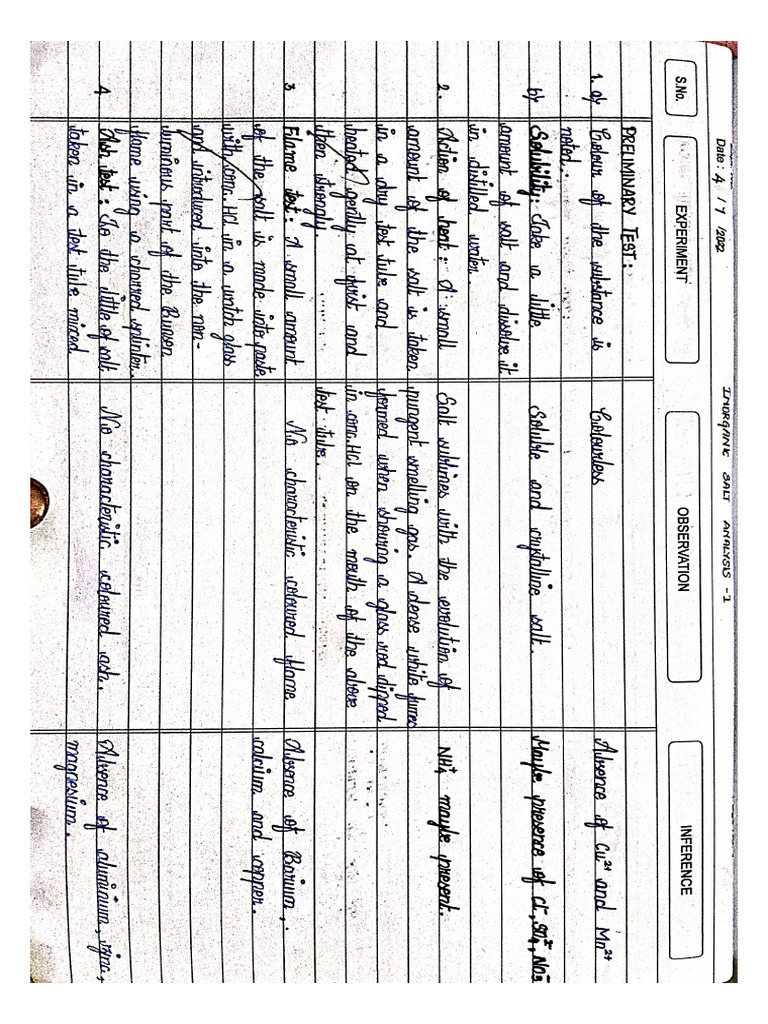 Date: 4 / 7 /2022
INORGANIC SALT ANALYSIS -1
S.No.
EXPERIMENT
OBSERVATION
INFERENCE
PRELIMINARY TEST:
1. a) Colour of the substance is
noted.
Colourless
Absence of Cu2+ and Mn2+
b) Solubility: Take a little
amount of salt and dissolve it
in distilled water.
Soluble and crystalline salt.
Maybe presence of Cl-, SO4 2-, NO3-
2. Action of heat: A small
amount of the salt is taken
in a dry test tube and
heated gently at first and
then strongly.
Salt sublimes with the evolution of
pungent smelling gas. A dense white fumes
formed when showing a glass rod dipped
in conc.HCl on the mouth of the above
test tube.
NH4+ maybe present.
3 Flame test: A small amount
of the salt is made into paste
with conc. HCl in a watch glass
and introduced into the non-
luminous part of the Bunsen
flame using a charred splinter.
No characteristic coloured flame
Absence of Barium,
calcium and copper.
4. Ash test: To the little of salt
taken in a test tube mixed
No characteristic coloured ash.
Absence of aluminium, zinc,
magnesium.